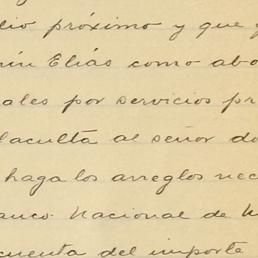 lio próximo y que
nín Elías como abo
ales por servicios pr
faculta al señor do
haga los arreglos nec
anco Nacional de M
cuenta del importe